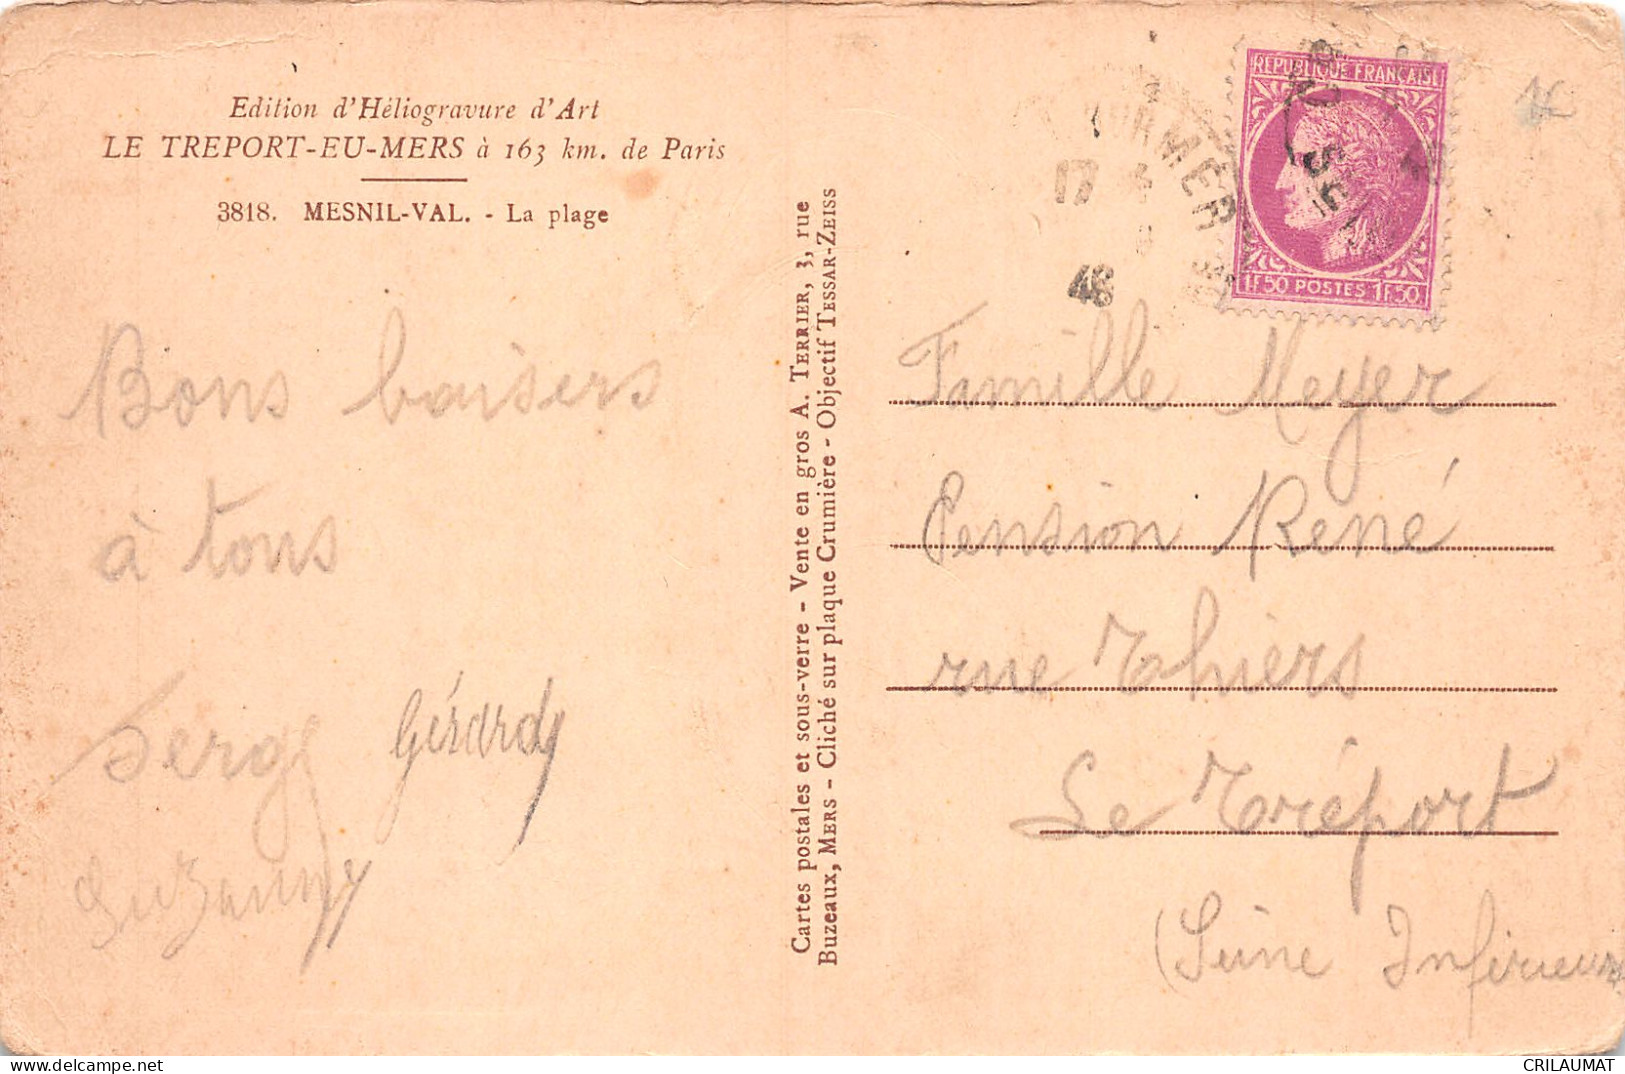 Edition d'Héliogravure d'Art
LE TREPORT-EU-MERS à 163 km. de Paris
3818. MESNIL-VAL. - La plage
Bons baisers
à tous
Serge Gérard
Suzanne
Cartes postales et sous-verre - Vente en gros A. TERRIER, 3, rue
Buzeaux, MERS - Cliché sur plaque Crumière - Objectif TESSAR-ZEISS
REPUBLIQUE FRANÇAISE
1F50 POSTES 1F50
17
48
Famille Meyer
Pension René
rue Thiers
Le Tréport
(Seine Inférieure
CRILAUMAT